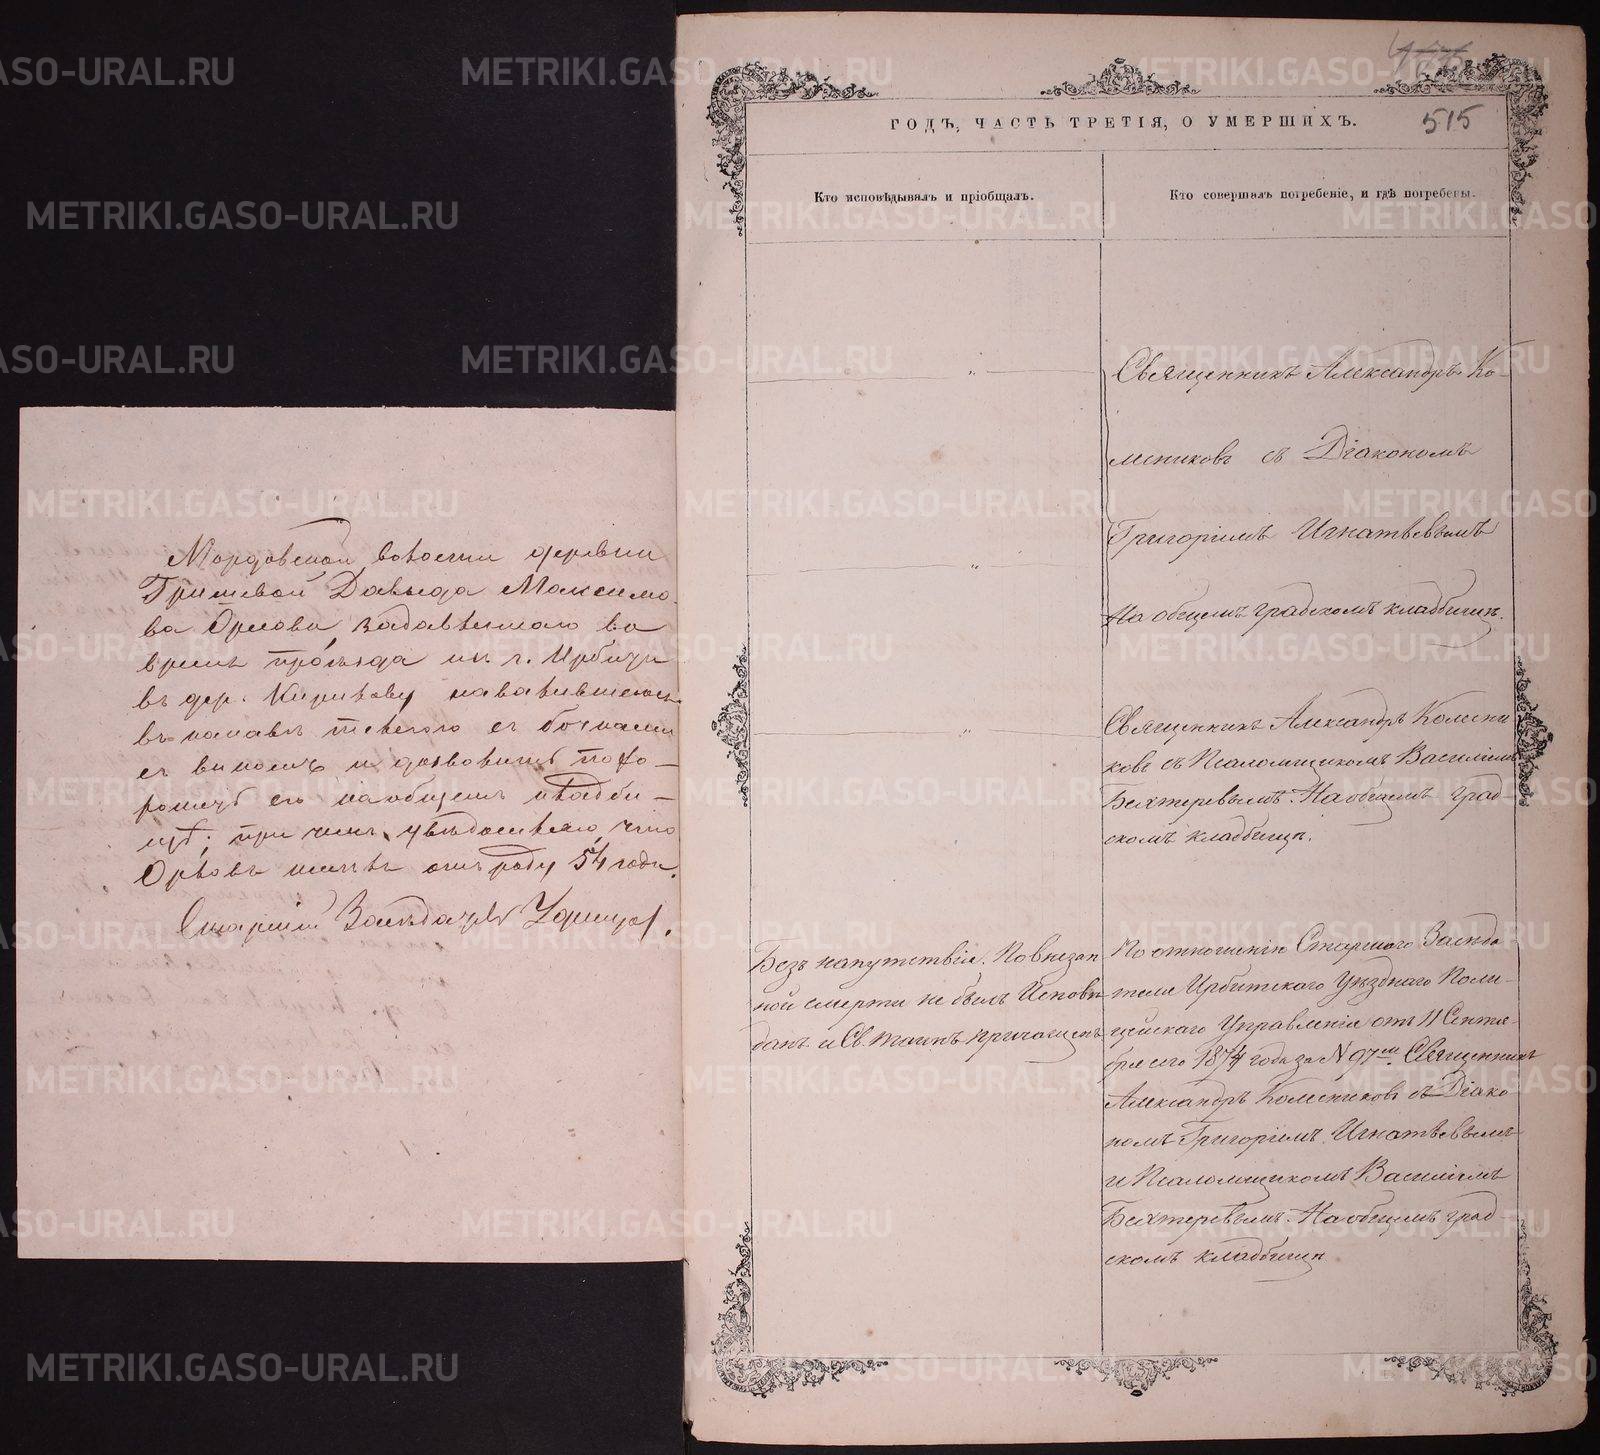 Мордовской волости деревни
Гришевой Давыда Максимо-
ва Орлова, задавленнаго во
время проѣзда из г. Ирбити
въ дер. Кирилову навалившеюся
въ канавѣ телегою съ бочками
съ виномъ и дозволитъ похо-
ронить его на общемъ кладби-
щѣ; при чемъ увѣдомляю, что
Орловъ имѣлъ отъ роду 54 года.
Старшій Засѣдатель
515
ГОДЪ, ЧАСТЬ ТРЕТІЯ, О УМЕРШИХЪ.
Кто исповѣдывалъ и пріобщалъ.
Кто совершалъ погребеніе, и гдѣ погребены.
Священникъ Александръ Ко-
лениковъ съ Діакономъ
Григоріемъ Игнатьевымъ
На общемъ градскомъ кладбищѣ.
Священникъ Александръ Колени
ковъ съ Псаломщикомъ Василіемъ
Бехтеревымъ. На общемъ град
скомъ кладбищѣ.
Безъ напутствія. По внезап
ной смерти не былъ Исповѣ
данъ и Св. таинъ причащенъ
По отношенію Старшаго Засѣда-
теля Ирбитскаго Уѣзднаго Поли-
цейскаго Управленія отъ 11 Сентя-
бря сего 1874 года за N 97ем. Священникъ
Александръ Колениковъ съ Діако-
номъ Григоріемъ Игнатьевымъ
и Псаломщикомъ Василіемъ
Бехтеревымъ. На общемъ град
скомъ кладбищѣ
METRIKI.GASO-URAL.RU